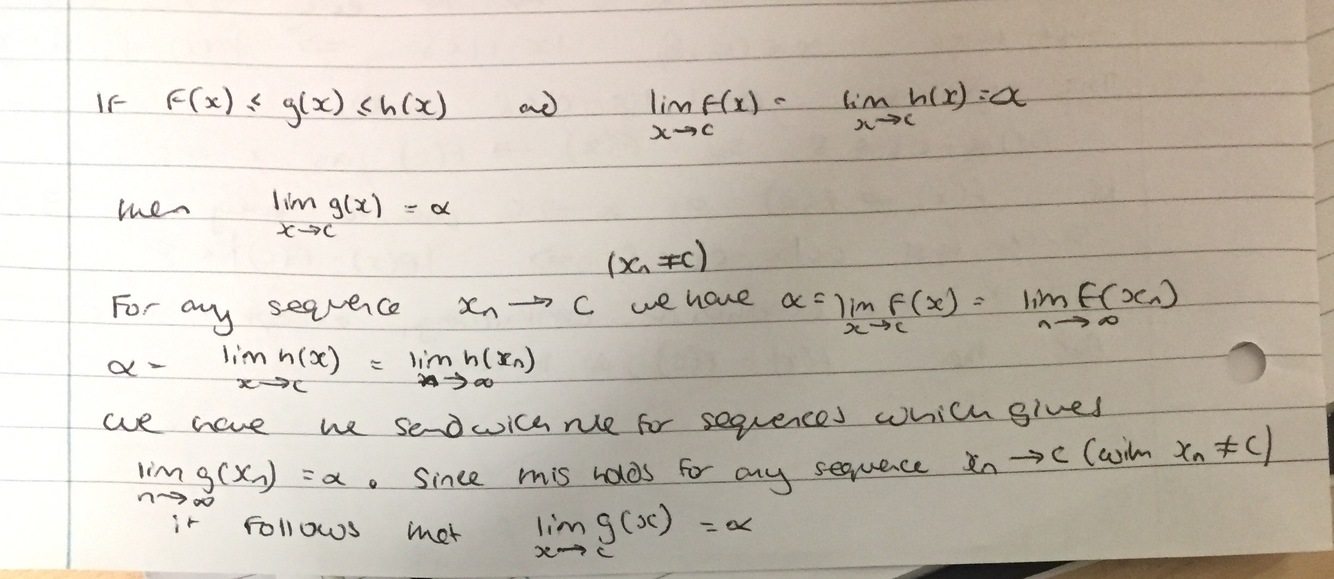 If f(x) ≤ g(x) ≤ h(x) and lim f(x) = lim h(x) = α
x→c x→c
then lim g(x) = α
x→c
(xₙ ≠ c)
For any sequence xₙ → c we have α = lim f(x) = lim f(xₙ)
x→c n→∞
α = lim h(x) = lim h(xₙ)
x→c n→∞
we have the sandwich rule for sequences which gives
lim g(xₙ) = α. Since this holds for any sequence xₙ → c (with xₙ ≠ c)
n→∞
it follows that lim g(x) = α
x→c